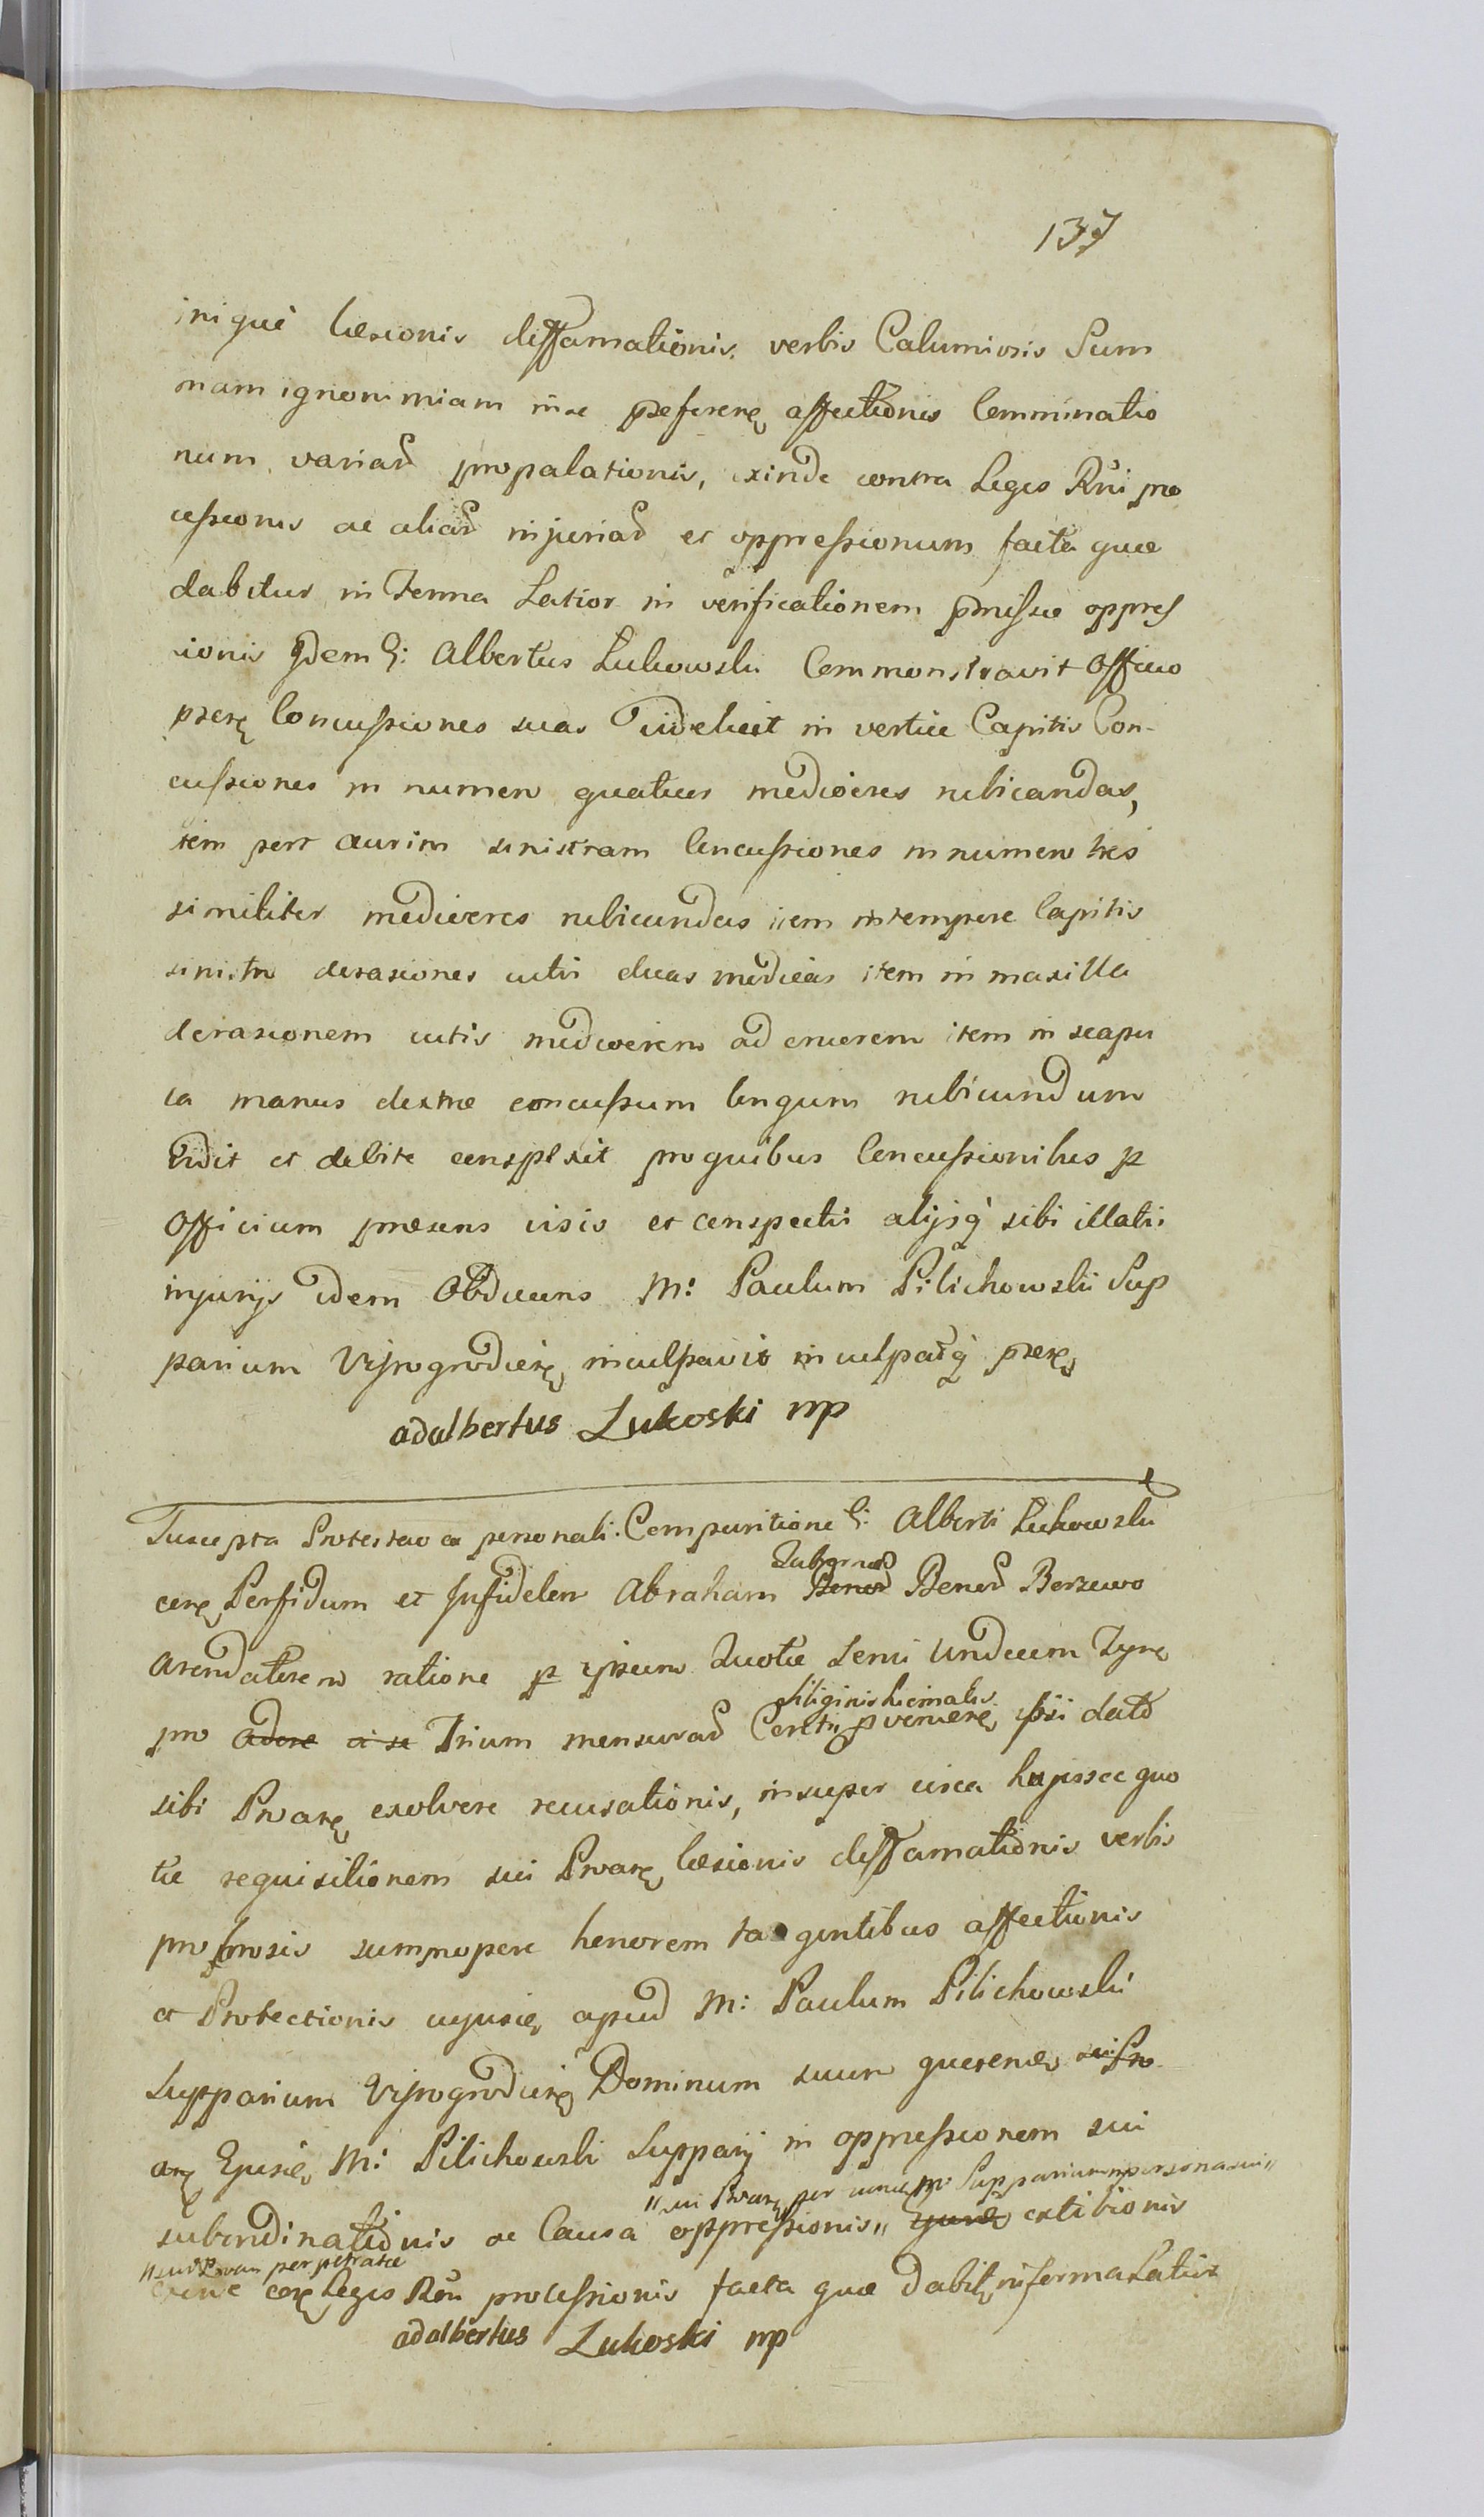 137
iniquè læsionis diffamationis verbis Calumiosis Sum
mam ignonimiam in se præferen affectionis Comminatio
num variar propalationis, exinde contra Leges Rni pro
cessionis ac aliar injuriar et oppressionum facta quæ
dabitur in Forma Latior in verificationem pmissæ oppres
sionis Idem G: Albertus Lukowski Commonstravit Officio
præn Concussiones suas Videlicet in vertice Capitis Con-
cussiones in numero quatuor mediocres rubicandas,
item post aurim sinistram Concussiones in numero tres
similiter mediocres rubicundas item in tempore Capitis
sinistro derasiones cutis duas modicas item in maxilla
derasionem cutis mediocrem ad cruorem item in scapu
la manus dextræ concussum longum rubicundum
Vidit et debite conspexit pro quibus Concussionibus p
Officium præsens visis et conspectis alijsq sibi illatis
injurijs idem Obducens M: Paulum Pilichowski Sup
parium Vyssogrodien inculpavit inculpatq præn
adalbertus Lukoski mp
Suscepta Protestao ex personali Comparitione G: Alberti Lukowski
Subarend
con Perfidum et Infidelem Abraham Bonor Bonor Borzewo
Arendatorem ratione p ipsum Quotæ Seni Undecim Tynf
siliginis hiemalis
pro adore a se Trium mensurar Certi provenien ipsi dator
sibi Prwan exolvere recusationis, insuper circa hujusce quo
tæ requisitionem sui Prwan læsionis diffamationis verbis
probrosis summopere honorem tangentibus affectionis
et Protectionis cujusd apud M: Paulum Pilichowski
Supparium Vyssogrodien Dominum suum querend sui Pro
an Ejusd M: Pilichowski Supparij in oppressionem sui
"sui Prwan per eund M: Supparium in persona sui"
subordinationis ac Causa oppressionis" ejusd extitionis
perpetratæ
con Leges Rni processionis facta quæ Dabit in forma Latior
adalbertus Lukoski mp